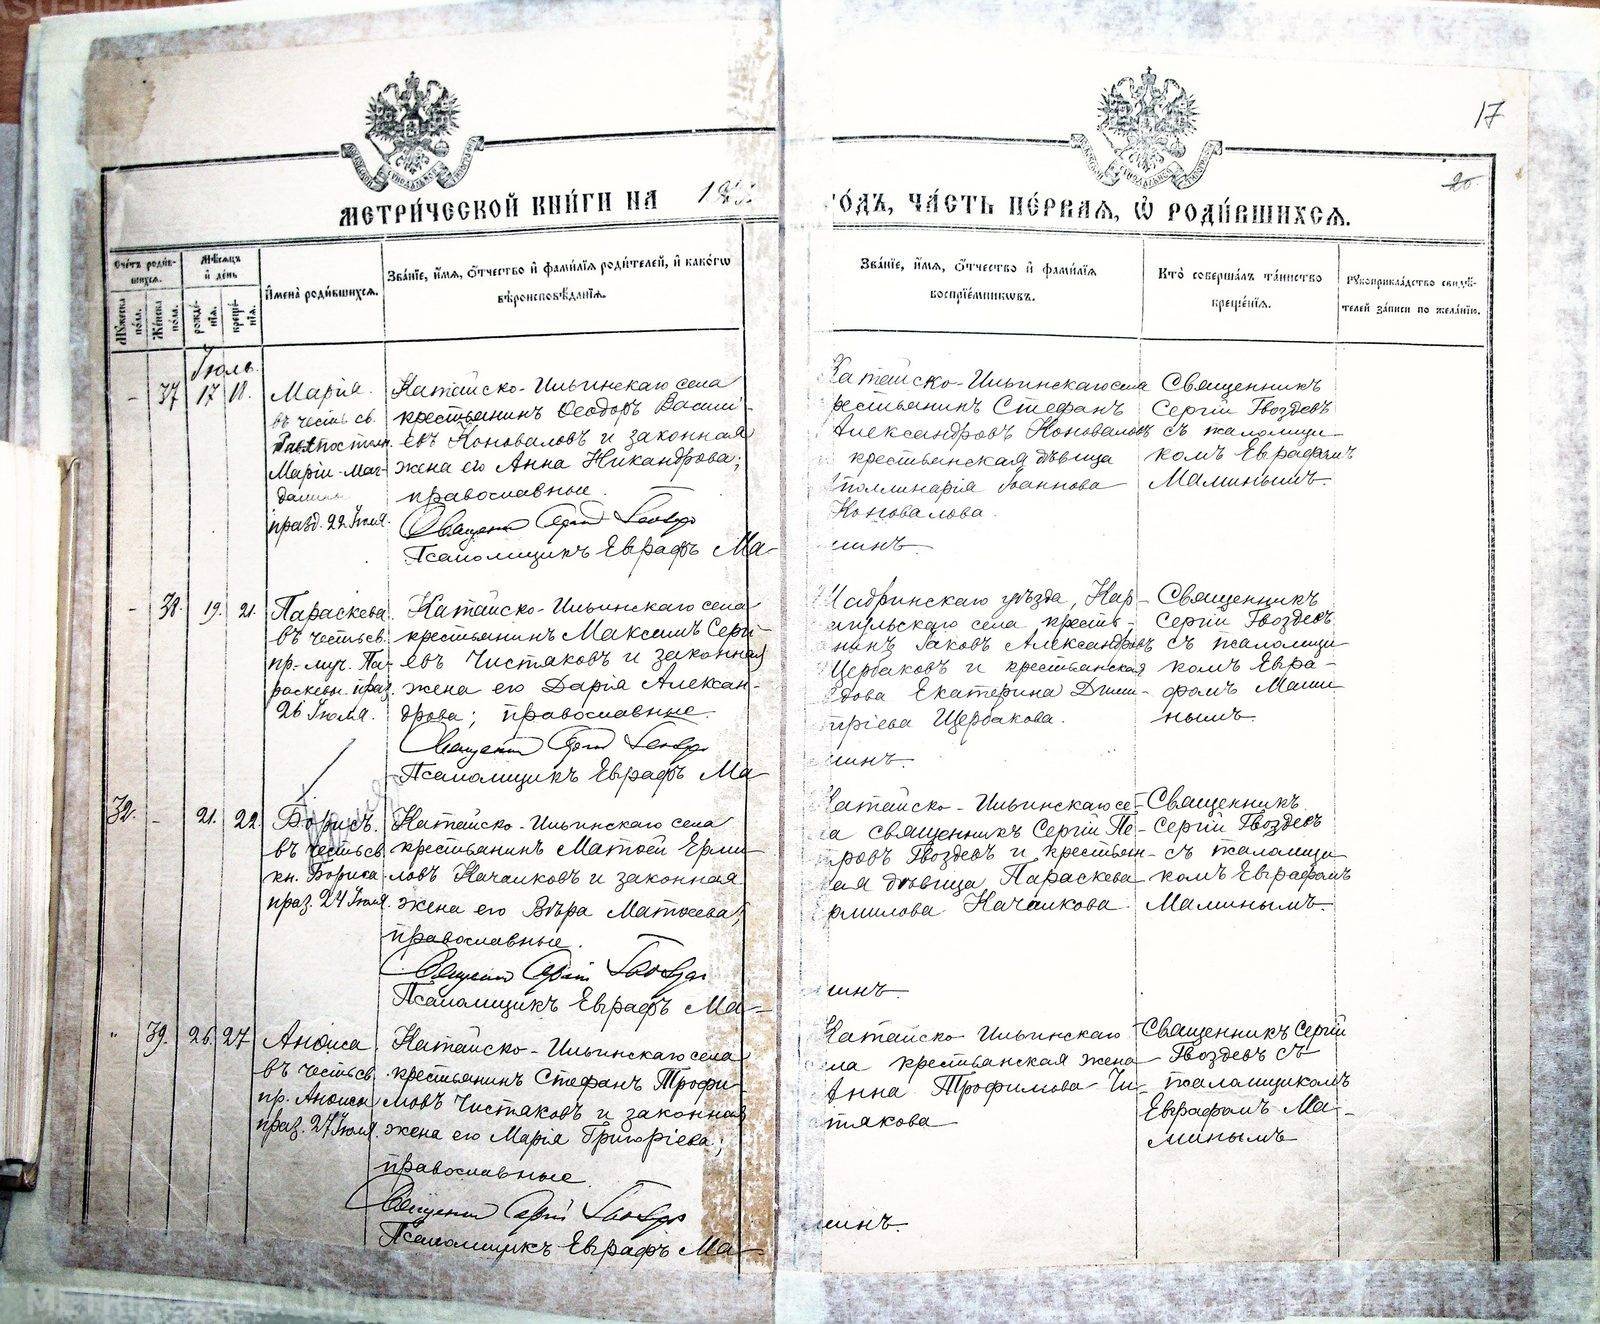 17
МЕТРИ́ЧЕСКОЙ КНИ́ГИ НА
ГО́ДЪ, ЧА́СТЬ ПЕ́РВАЯ, Ѡ҆ РОДИ́ВШИХСЯ.
Сче́тъ роди́в-
шихся.
Му́жеска по́ла.
Же́нска по́ла.
Мѣ́сяцъ и҆ де́нь
рожде́-
нїя.
креще́-
нїя.
И҆мена̀ роди́вшихся.
Зва́нїе, и҆́мя, ѻ҆́тчество и҆ фами́лїя роди́телей, и҆ како́гѡ
вѣроисповѣ́данїя.
Зва́нїе, и҆́мя, ѻ҆́тчество и҆ фами́лїя
воспрїе́мникѡвъ.
Кто̀ соверша́лъ та́инство
креще́нїя.
Рꙋкоприкла́дство свидѣ́-
телей за́писи по жела́нїю.
Іюль
- 37 17 18.
Марія.
въ честь св.
Равнопостолн.
Маріи Маг-
далины
празд. 22 Іюля.
Катайско-Ильинскаго села
крестьянинъ Ѳеодоръ Васил-
евъ Коноваловъ и законная
жена его Анна Никандрова;
православные.
Священникъ Сергій Гвоздевъ
Псаломщикъ Евграфъ Ма-
Катайско-Ильинскаго села
крестьянинъ Стефанъ
Александровъ Коноваловъ
и крестьянская дѣвица
Аполлинарія Іоаннова
Коновалова.
минъ.
Священникъ
Сергій Гвоздевъ
съ псаломщи-
комъ Евграфомъ
Маминымъ.
- 38. 19. 21.
Параскева
въ честь св.
пр-муч. Па-
раскевы праз.
26 Іюля.
Катайско-Ильинскаго села
крестьянинъ Максимъ Серги-
евъ Чистяковъ и законная
жена его Дарія Алексан-
дрова; православные.
Священникъ Сергій Гвоздевъ
Псаломщикъ Евграфъ Ма
Шадринскаго уѣзда, Кар-
гапульскаго села крестья-
нинъ Іаковъ Александровъ
Щербаковъ и крестьянская
вдова Екатерина Дими-
тріева Щербакова.
минъ.
Священникъ
Сергій Гвоздевъ
съ псаломщи-
комъ Евгра-
фомъ Мами-
нымъ.
32. - 21. 22.
Борисъ.
въ честь св.
кн. Бориса
праз. 24 Іюля.
Катайско-Ильинскаго села
крестьянинъ Матѳей Ерми-
ловъ Качалковъ и законная
жена его Вѣра Матѳеева;
православные.
Священникъ Сергій Гвоздевъ
Псаломщикъ Евграфъ Ма-
Катайско-Ильинскаго се-
ла священникъ Сергій Пе-
тровъ Гвоздевъ и крестьян-
ская дѣвица Параскева
Ермилова Качалкова.
минъ.
Священникъ
Сергій Гвоздевъ
съ псаломщи-
комъ Евграфомъ
Маминымъ.
" 39. 26. 27
Анѳиса
въ честь св.
пр. Анѳисы
праз. 27 Іюля.
Катайско-Ильинскаго села
крестьянинъ Стефанъ Трофи-
мовъ Чистяковъ и законная
жена его Марія Григоріева;
православные.
Священникъ Сергій Гвоздевъ
Псаломщикъ Евграфъ Ма-
Катайско Ильинскаго
села крестьянская жена
Анна Трофимова Чи-
стякова
минъ.
Священникъ Сергій
Гвоздевъ съ
псаломщикомъ
Евграфомъ Ма-
минымъ